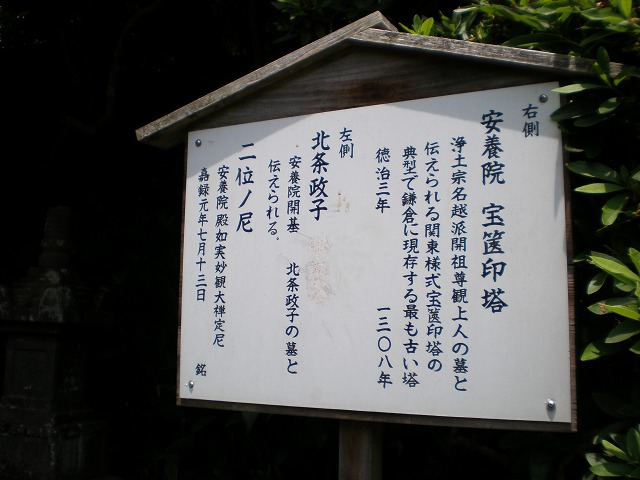 右側
安養院 宝篋印塔
浄土宗名越派開祖尊観上人の墓と
伝えられる関東様式宝篋印塔の
典型で鎌倉に現存する最も古い塔
徳治三年 一三〇八年
左側
北条政子
安養院開基 北条政子の墓と
伝えられる。
二位ノ尼
安養院殿如実妙観大禅定尼
嘉録元年七月十三日 銘